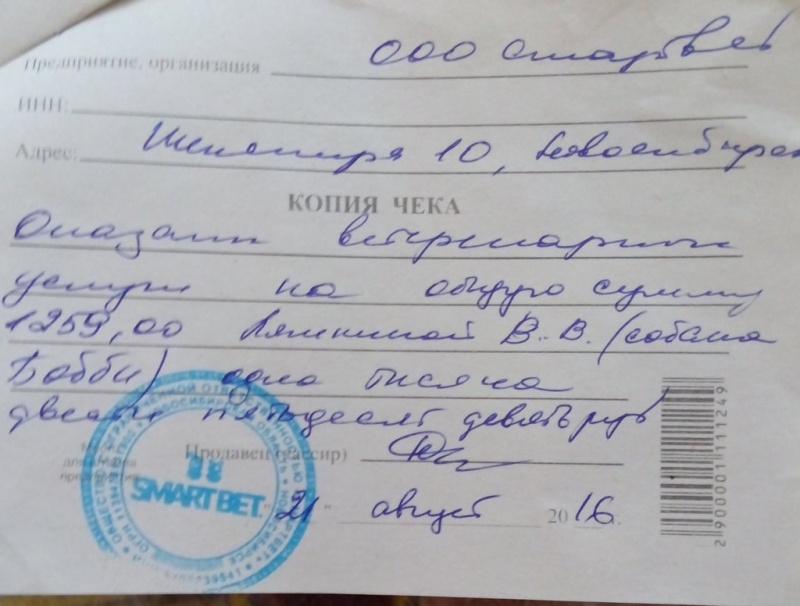 Предприятие, организация ООО СмартВет
ИНН:
Адрес: Шекспира 10, Новосибирск
КОПИЯ ЧЕКА
Оказаны ветеринарные
услуги на общую сумму
1259,00 В.В. (собака
Бобби) одна тысяча
двести пятьдесят девять руб
Продавец (кассир)
SMARTВЕТ.
"21" август 2016г.
2900001111249